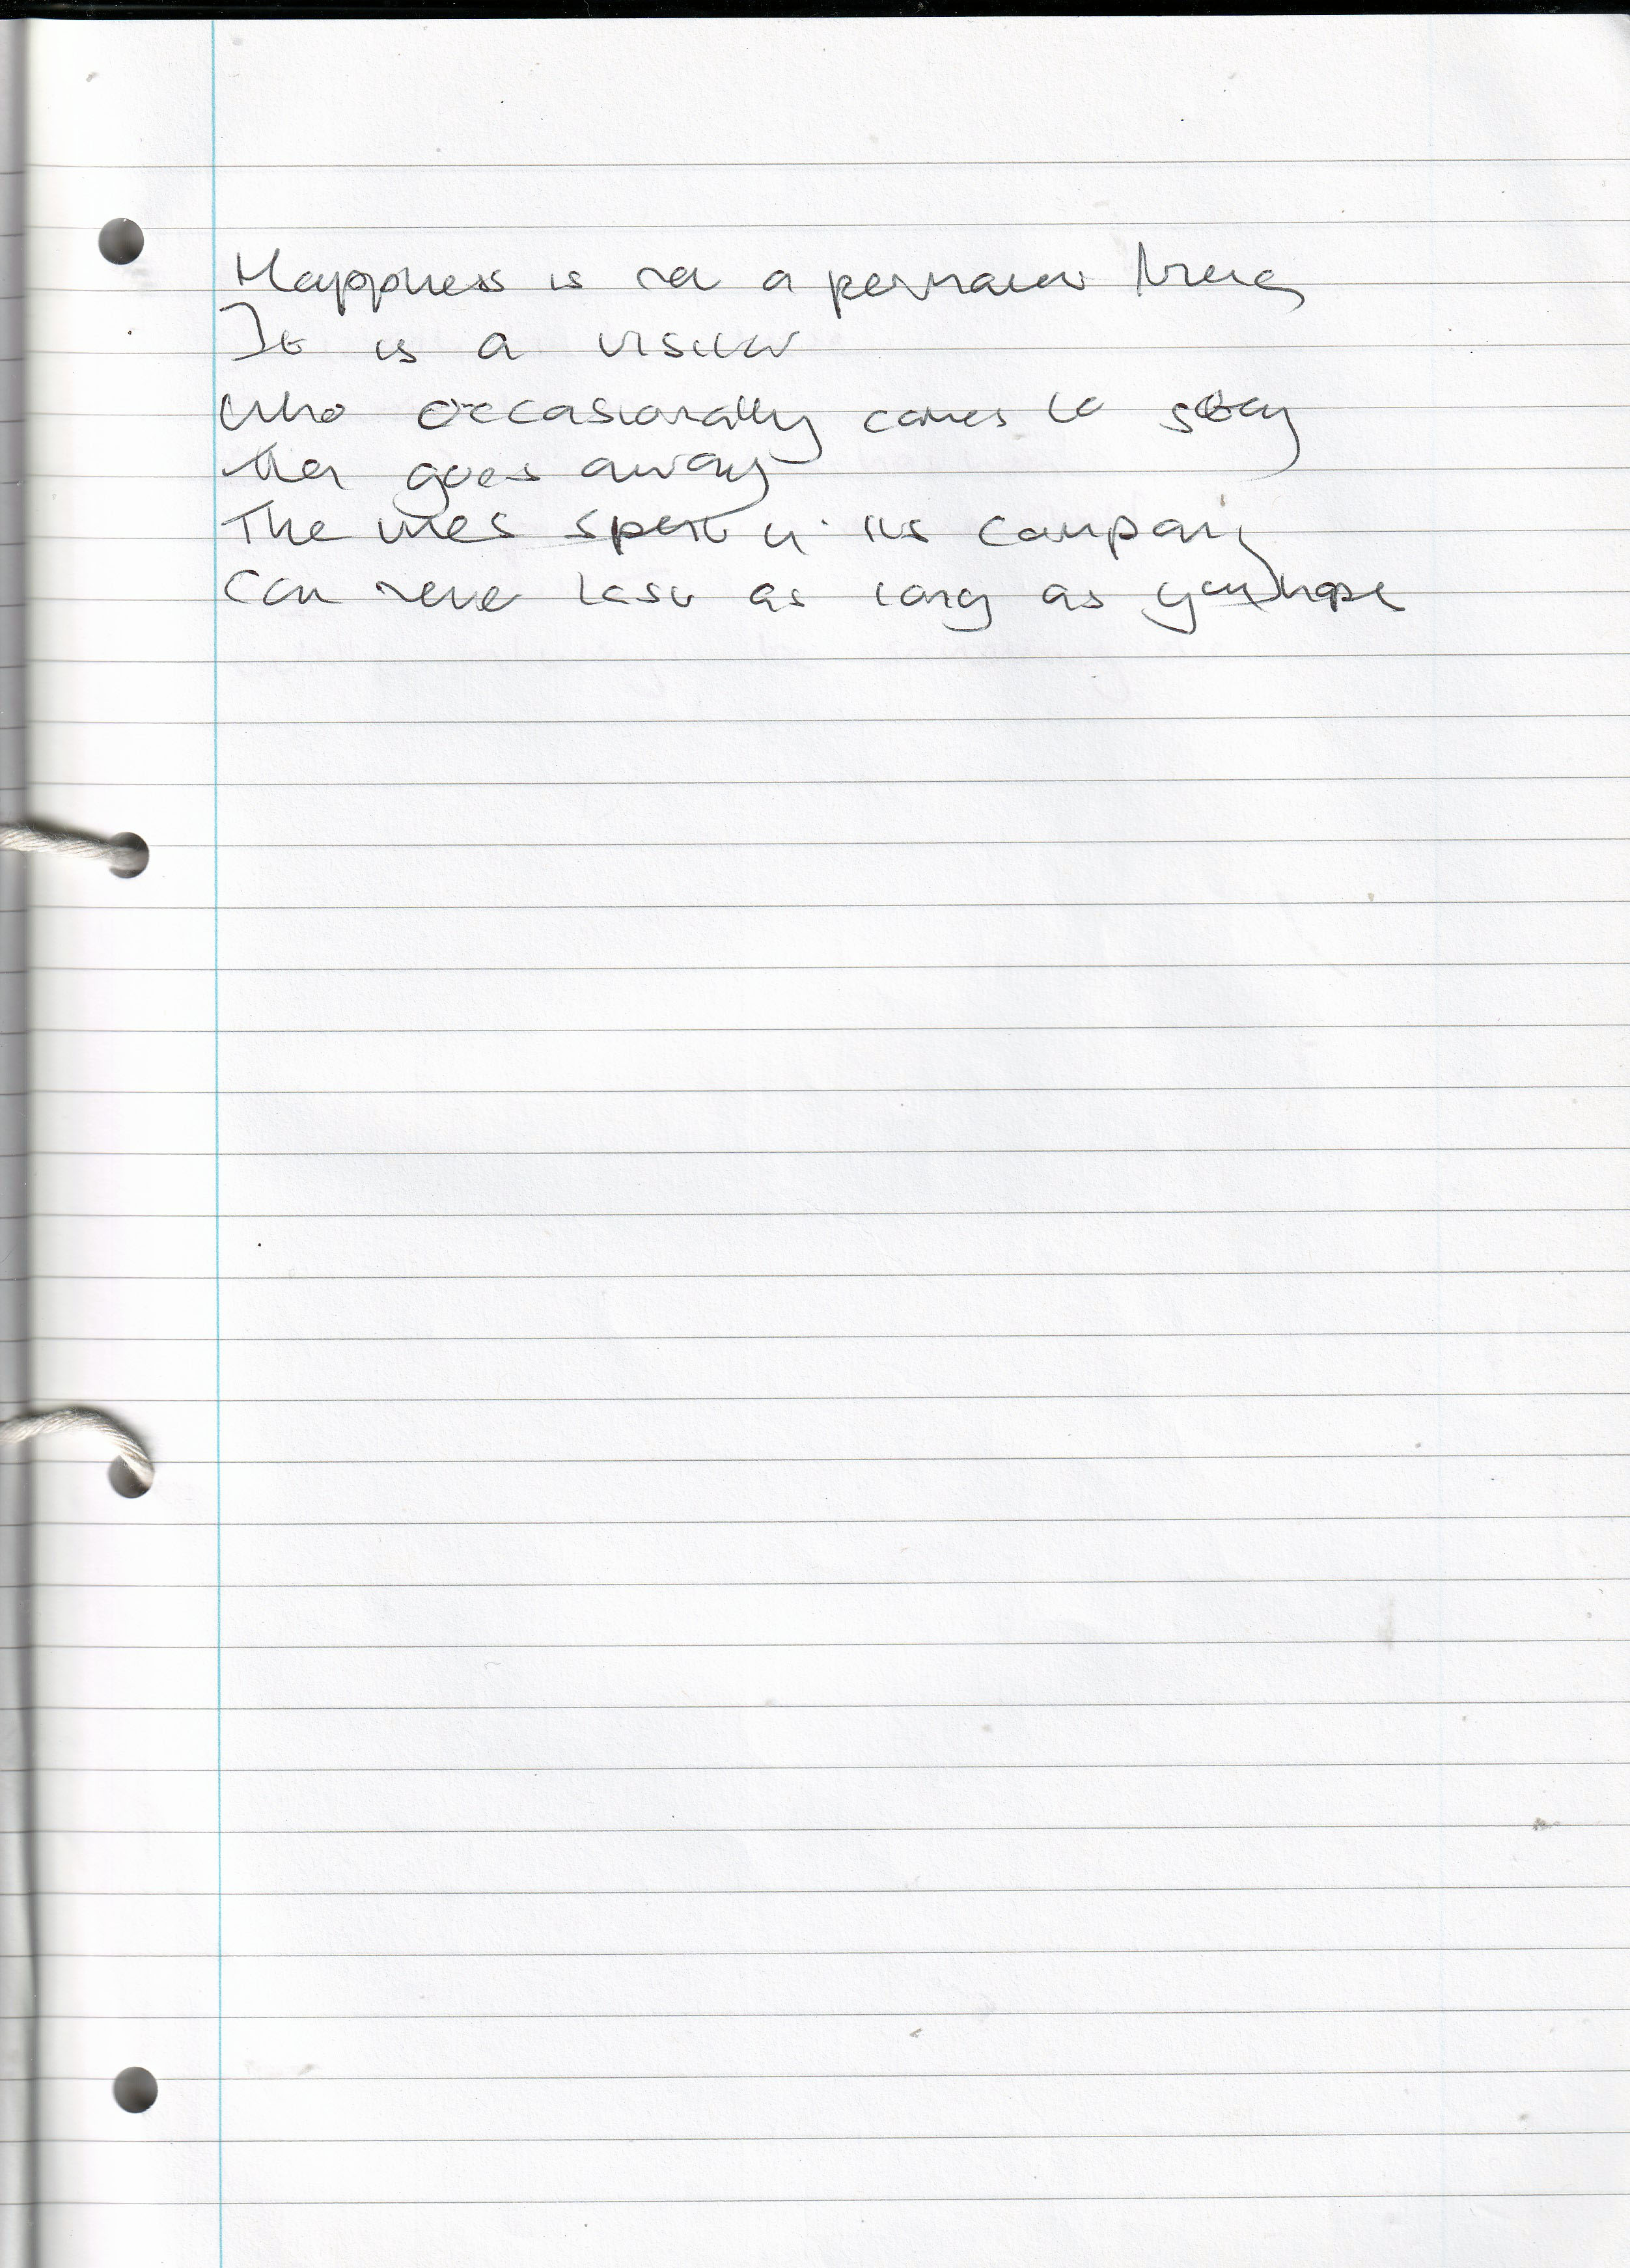 Happiness is not a permanent thing
It is a visitor
Who occasionally comes to stay
then goes away
The times spent in its company
Can never last as long as you hope